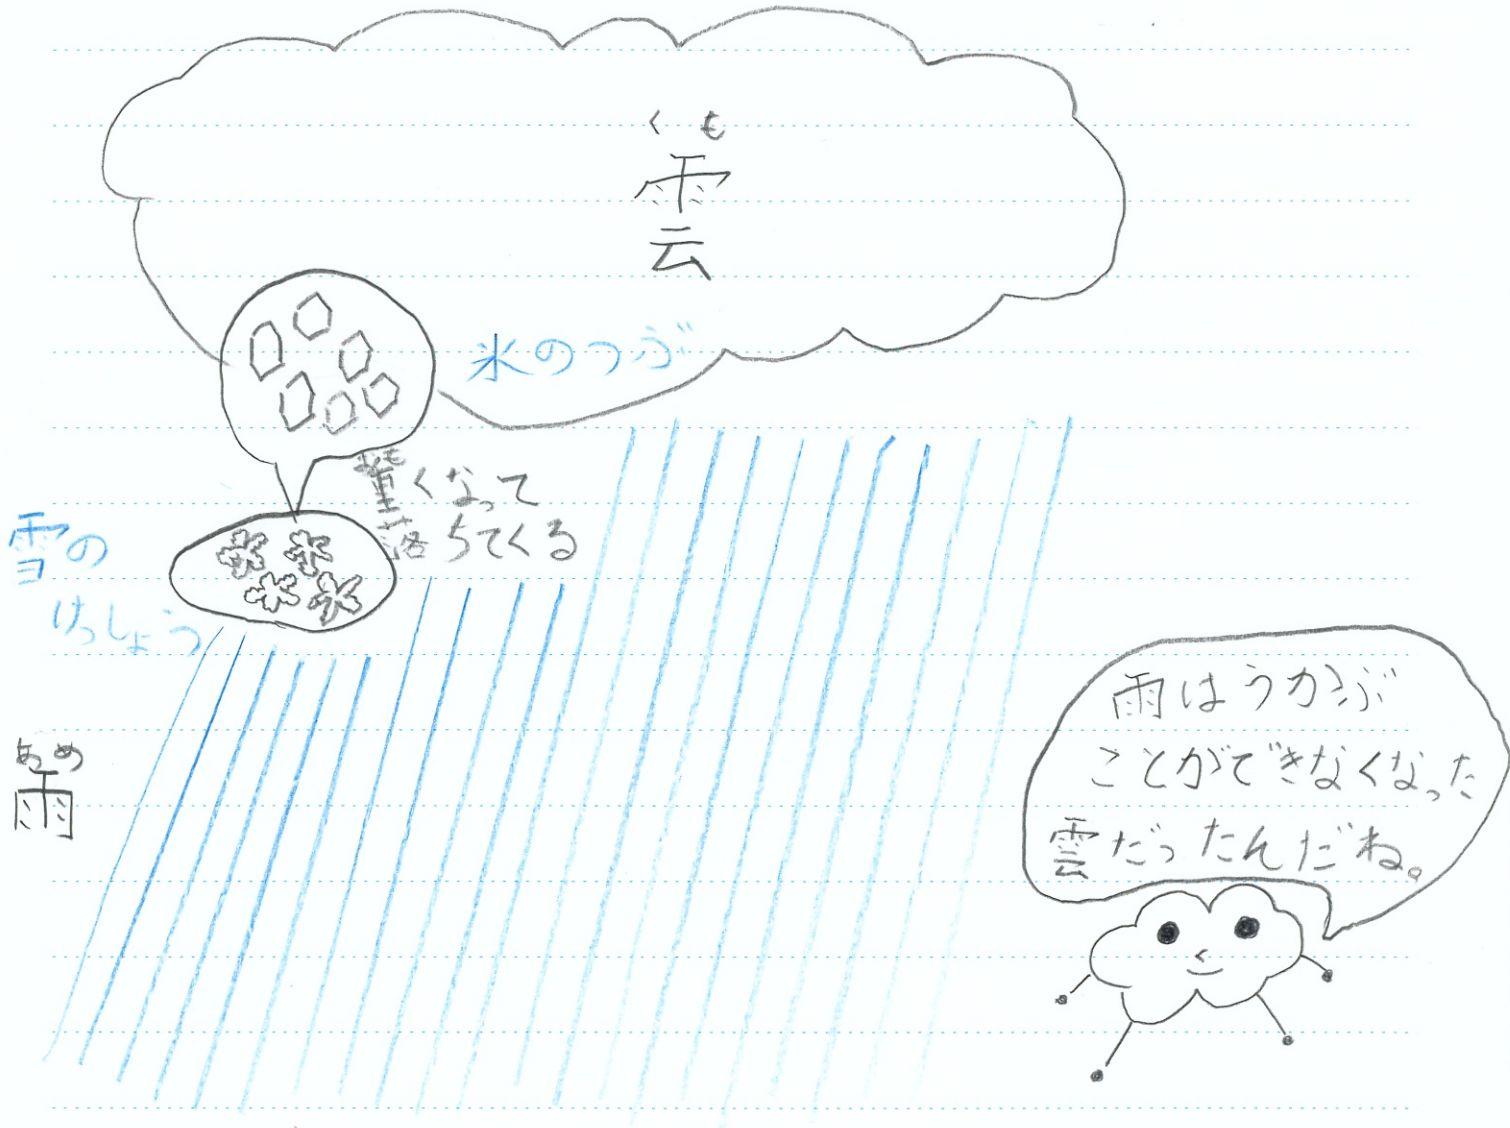 くも
雲
氷のつぶ
重くなって
落ちてくる
雪の
けっしょう
あめ
雨
雨はうかぶ
ことができなくなった
雲だったんだね。